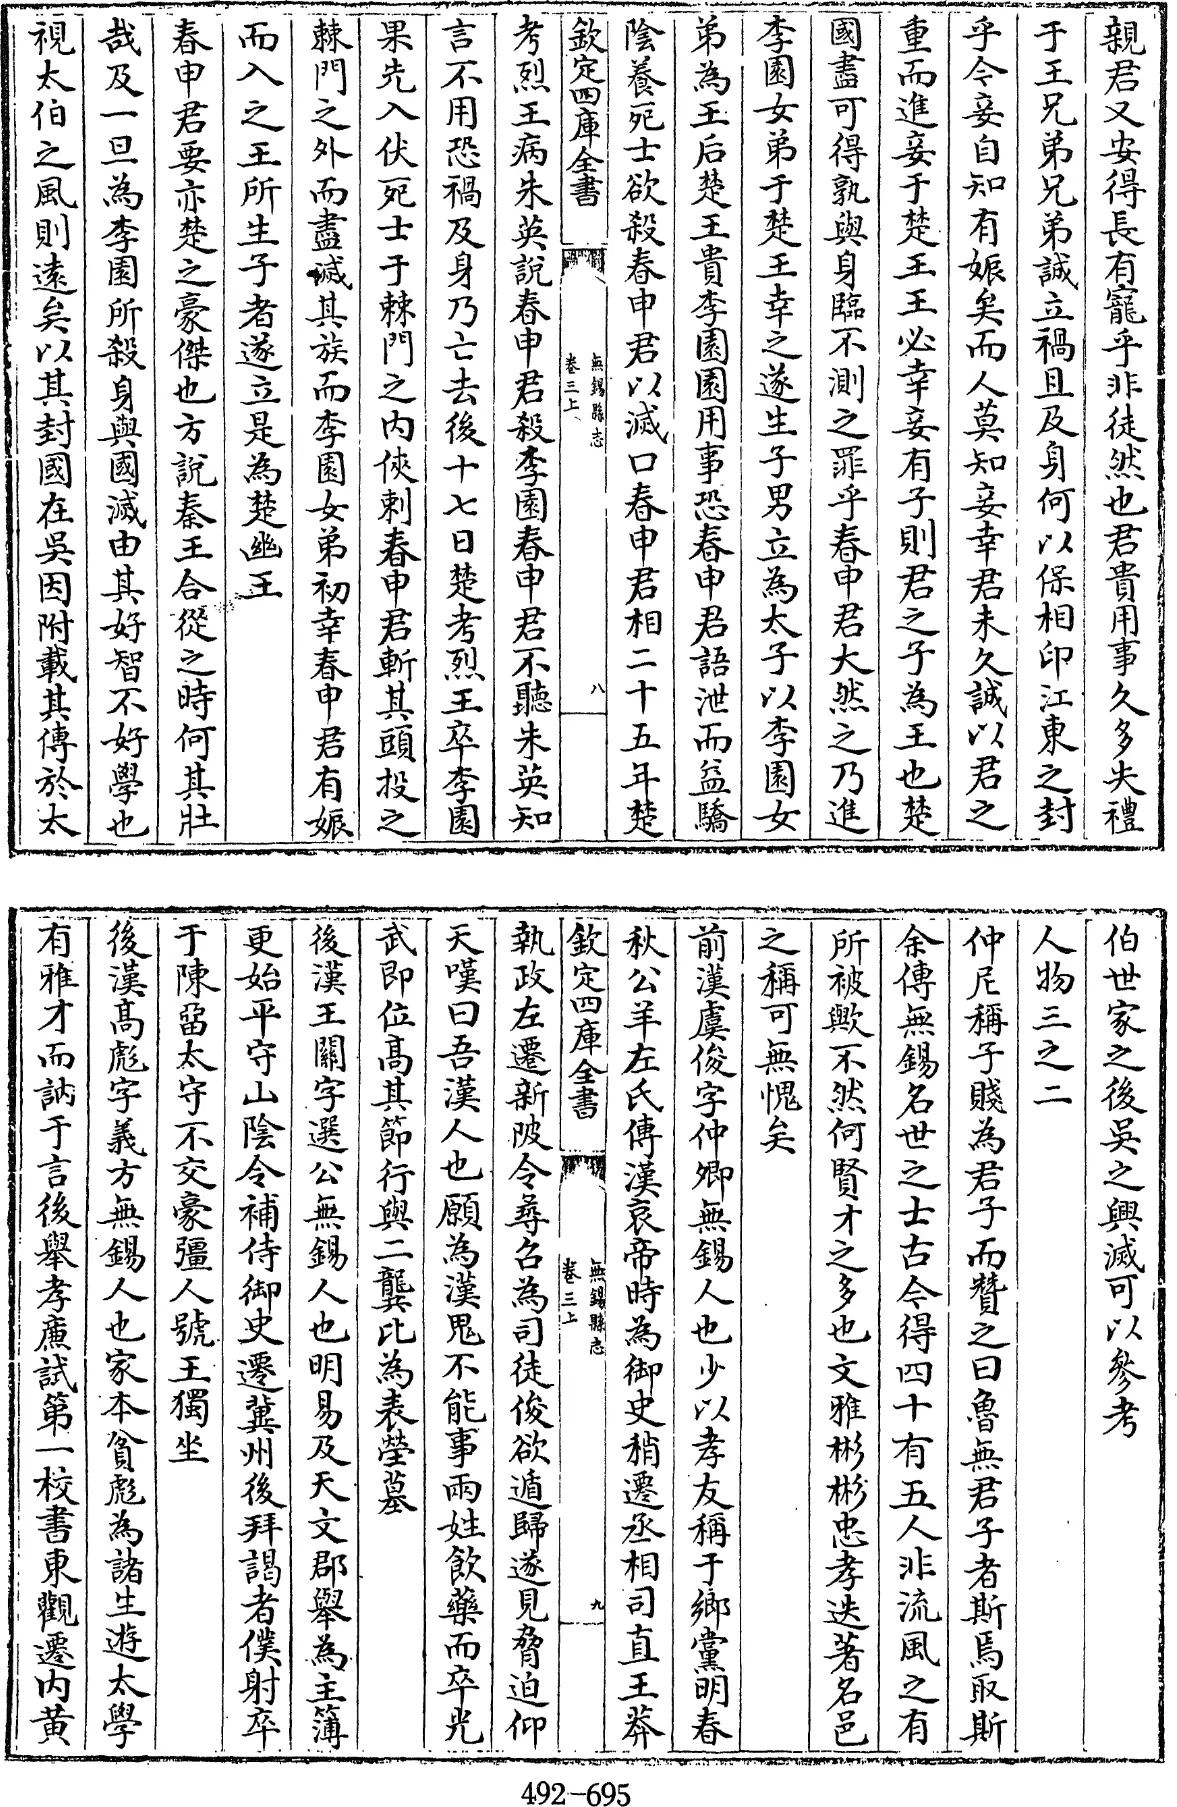 親君又安得長有寵乎非徒然也君貴用事久多失禮
于王兄弟兄弟誠立禍且及身何以保相印江東之封
乎今妾自知有娠矣而人莫知妾幸君未久誠以君之
重而進妾于楚王王必幸妾有子則君之子為王也楚
國盡可得孰與身臨不測之罪乎春申君大然之乃進
李園女弟于楚王幸之遂生子男立為太子以李園女
弟為王后楚王貴李園園用事恐春申君語泄而益驕
陰養死士欲殺春申君以滅口春申君相二十五年楚
欽定四庫全書
無錫縣志
卷三上
八
考烈王病朱英說春申君殺李園春申君不聽朱英知
言不用恐禍及身乃亡去後十七日楚考烈王卒李園
果先入伏死士于棘門之內俠刺春申君斬其頭投之
棘門之外而盡滅其族而李園女弟初幸春申君有娠
而入之王所生子者遂立是為楚幽王
春申君要亦楚之豪傑也方說秦王合從之時何其壯
哉及一旦為李園所殺身與國滅由其好智不好學也
視太伯之風則遠矣以其封國在吳因附載其傳於太
伯世家之後吳之興滅可以參考
人物三之二
仲尼稱子賤為君子而贊之曰魯無君子者斯焉取斯
余傳無錫名世之士古今得四十有五人非流風之有
所被歟不然何賢才之多也文雅彬彬忠孝迭著名邑
之稱可無愧矣
前漢虞俊字仲卿無錫人也少以孝友稱于鄉黨明春
秋公羊左氏傳漢哀帝時為御史稍遷丞相司直王莽
欽定四庫全書
無錫縣志
卷三上
九
執政左遷新陂令尋召為司徒俊欲遁歸遂見脅迫仰
天嘆曰吾漢人也願為漢鬼不能事兩姓飲藥而卒光
武即位高其節行與二龔比為表塋墓
後漢王關字選公無錫人也明易及天文郡舉為主簿
更始平守山陰令補侍御史遷冀州後拜謁者僕射卒
于陳留太守不交豪彊人號王獨坐
後漢高彪字義方無錫人也家本貧彪為諸生遊太學
有雅才而訥于言後舉孝廉試第一校書東觀遷內黃
492-695